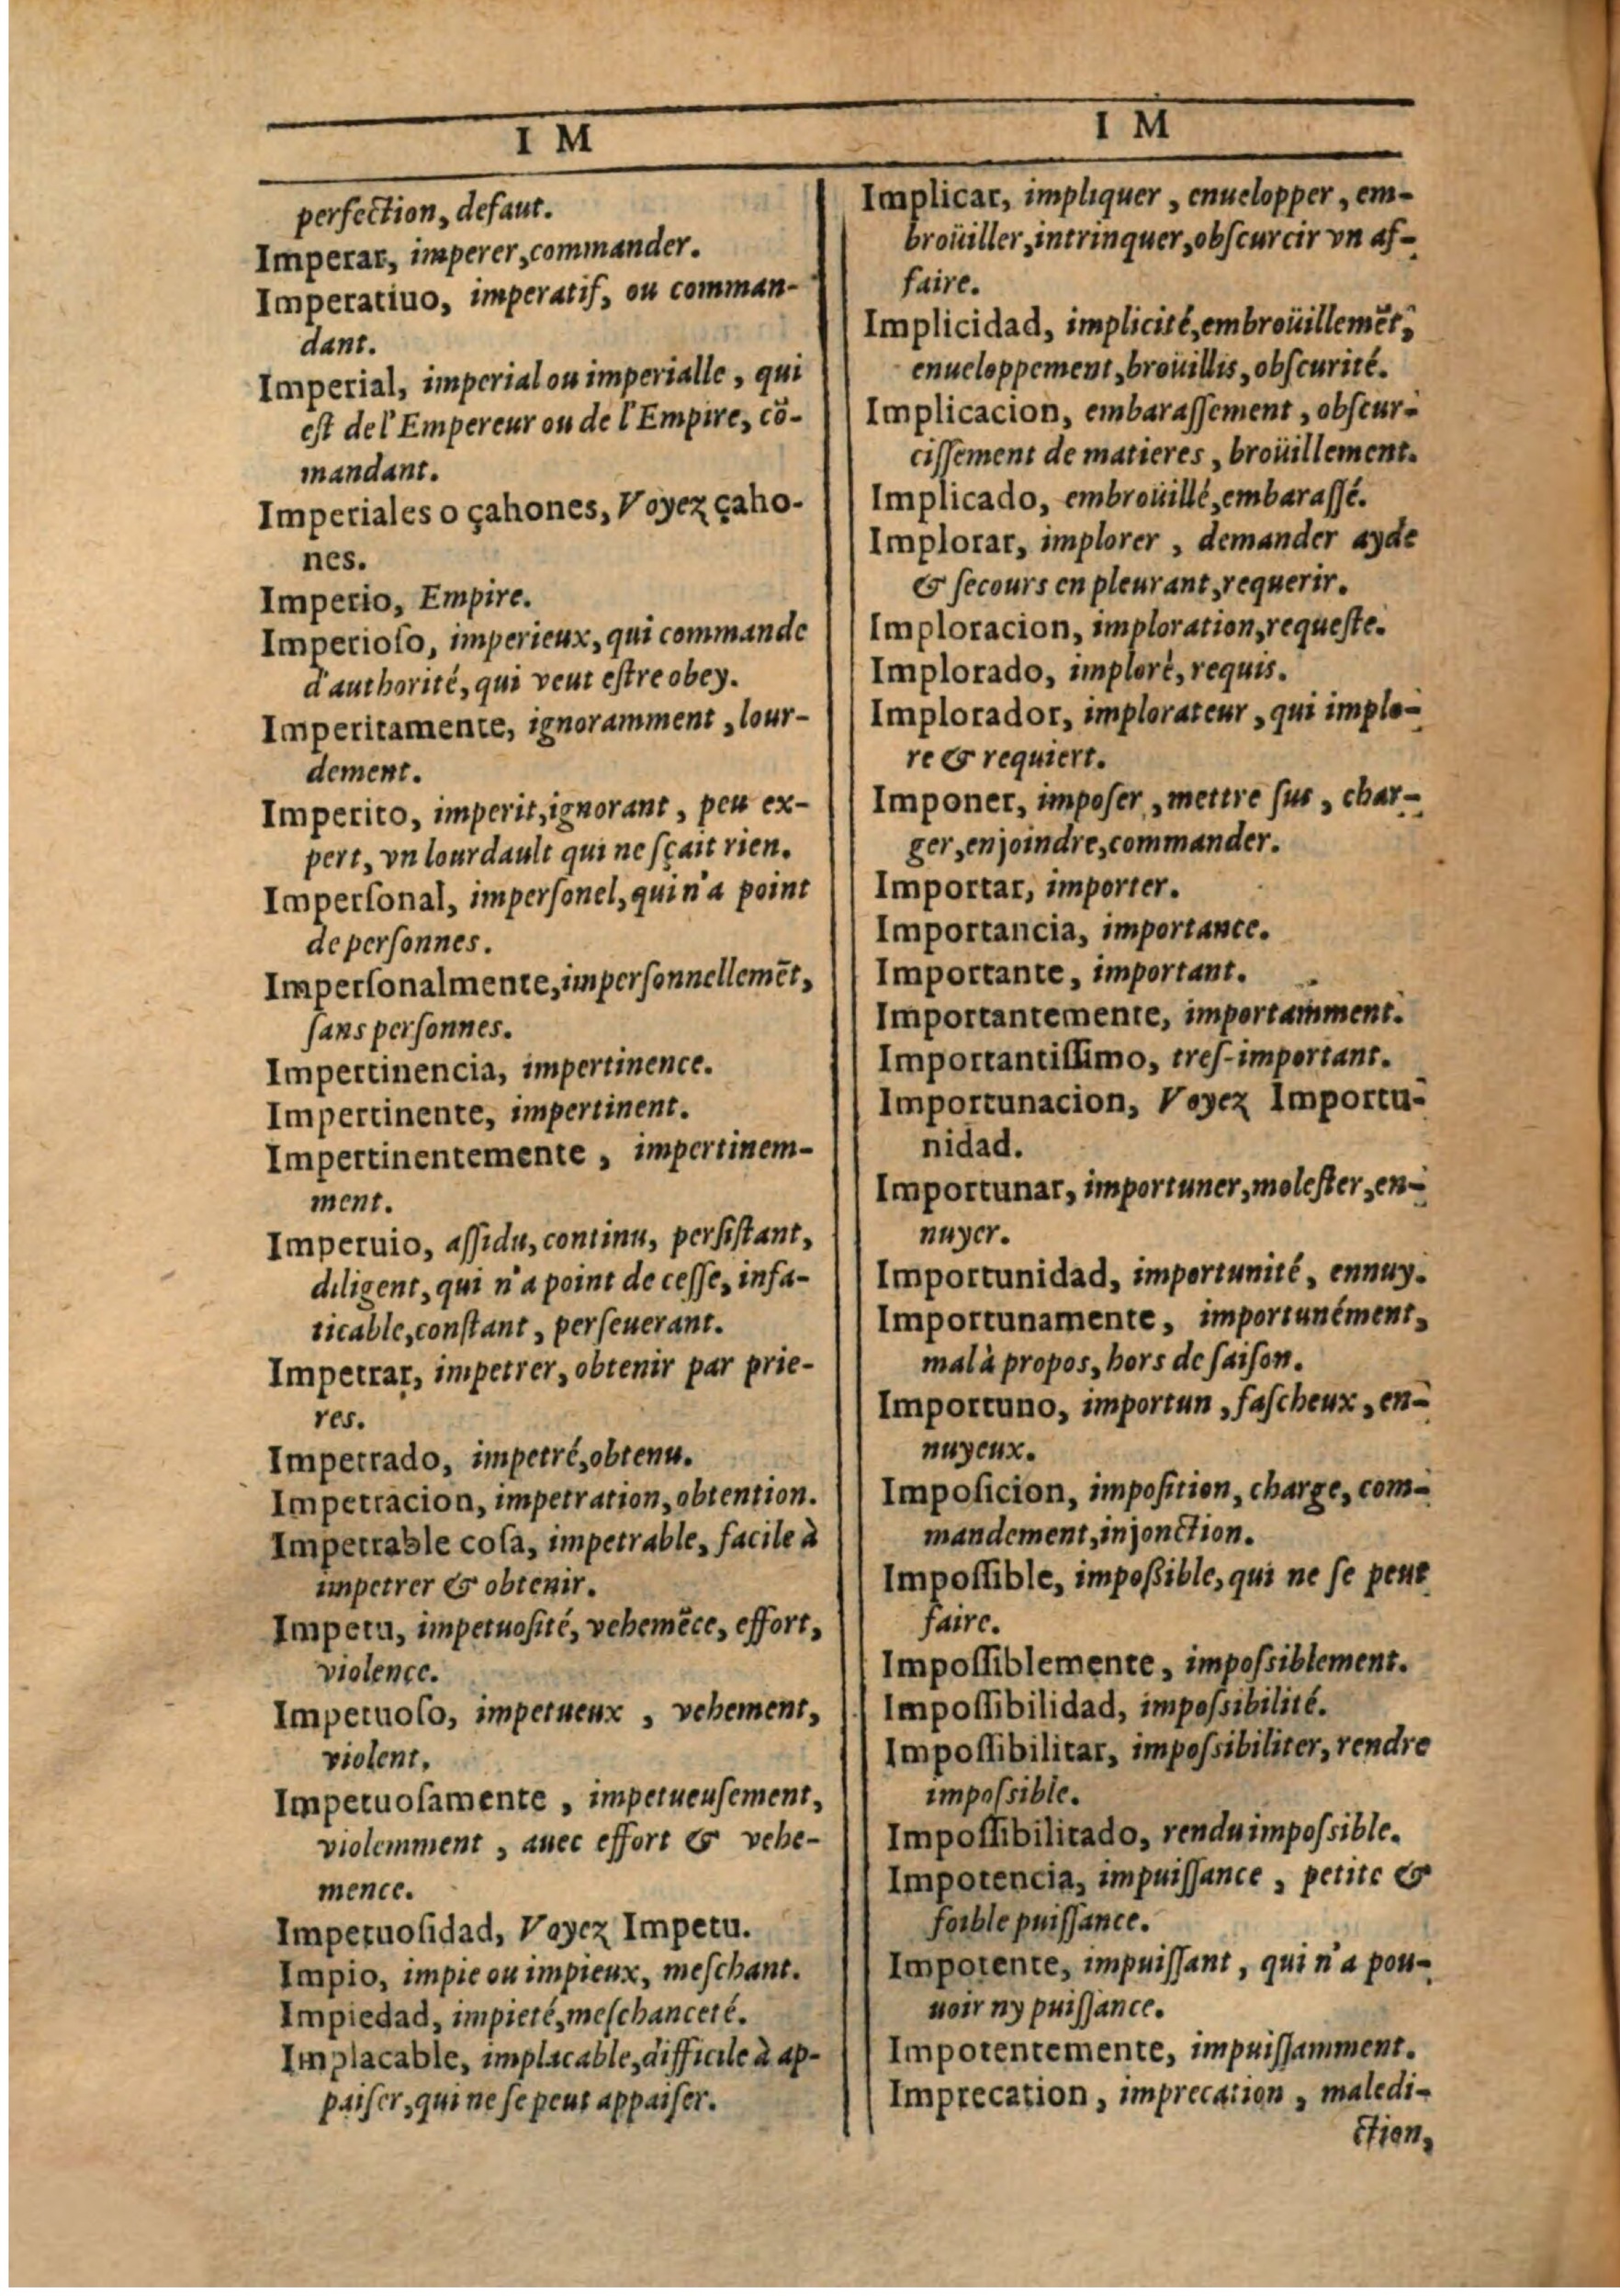 I M
perfection, defaut.
Imperar, imperer, commander.
Imperatiuo, imperatif, ou comman-
dant.
Imperial, imperial ou imperialle, qui
est de l'Empereur ou de l'Empire, cõ-
mandant.
Imperiales o çahones, Voyez çaho-
nes.
Imperio, Empire.
Imperioſo, imperieux, qui commande
d'authorité, qui veut eſtre obey.
Imperitamente, ignoramment, lour-
dement.
Imperito, imperit, ignorant, peu ex-
pert, vn lourdault qui ne ſçait rien.
Imperſonal, imperſonel, qui n'a point
de perſonnes.
Imperſonalmente, imperſonnellemẽt,
ſans perſonnes.
Impertinencia, impertinence.
Impertinente, impertinent.
Impertinentemente, impertinem-
ment.
Imperuio, aſſidu, continu, perſiſtant,
diligent, qui n'a point de ceſſe, infa-
ticable, conſtant, perſeuerant.
Impetrar, impetrer, obtenir par prie-
res.
Impetrado, impetré, obtenu.
Impetracion, impetration, obtention.
Impetrable coſa, impetrable, facile à
impetrer & obtenir.
Impetu, impetuoſité, vehemẽce, effort,
violence.
Impetuoſo, impetueux, vehement,
violent.
Impetuoſamente, impetueuſement,
violemment, auec effort & vehe-
mence.
Impetuoſidad, Voyez Impetu.
Impio, impie ou impieux, meſchant.
Impiedad, impieté, meſchanceté.
Implacable, implacable, difficile à ap-
paiſer, qui ne ſe peut appaiſer.
I M
Implicar, impliquer, enuelopper, em-
broüiller, intrinquer, obſcurcir vn af-
faire.
Implicidad, implicité, embroüillemẽt,
enueloppement, broüillis, obſcurité.
Implicacion, embaraſſement, obſcur-
ciſſement de matieres, broüillement.
Implicado, embroüillé, embaraſſé.
Implorar, implorer, demander ayde
& ſecours en pleurant, requerir.
Imploracion, imploration, requeſte.
Implorado, imploré, requis.
Implorador, implorateur, qui implo-
re & requiert.
Imponer, impoſer, mettre ſus, char-
ger, enjoindre, commander.
Importar, importer.
Importancia, importance.
Importante, important.
Importantemente, importamment.
Importantiſſimo, treſ-important.
Importunacion, Voyez Importu-
nidad.
Importunar, importuner, moleſter, en-
nuyer.
Importunidad, importunité, ennuy.
Importunamente, importunément,
mal à propos, hors de ſaiſon.
Importuno, importun, faſcheux, en-
nuyeux.
Impoſicion, impoſition, charge, com-
mandement, injonction.
Impoſſible, impoßible, qui ne ſe peut
faire.
Impoſſiblemente, impoſsiblement.
Impoſſibilidad, impoſsibilité.
Impoſſibilitar, impoſsibiliter, rendre
impoſsible.
Impoſſibilitado, rendu impoſsible.
Impotencia, impuiſſance, petite &
foible puiſſance.
Impotente, impuiſſant, qui n'a pou-
uoir ny puiſſance.
Impotentemente, impuiſſamment.
Imprecation, imprecation, maledi-
ction,